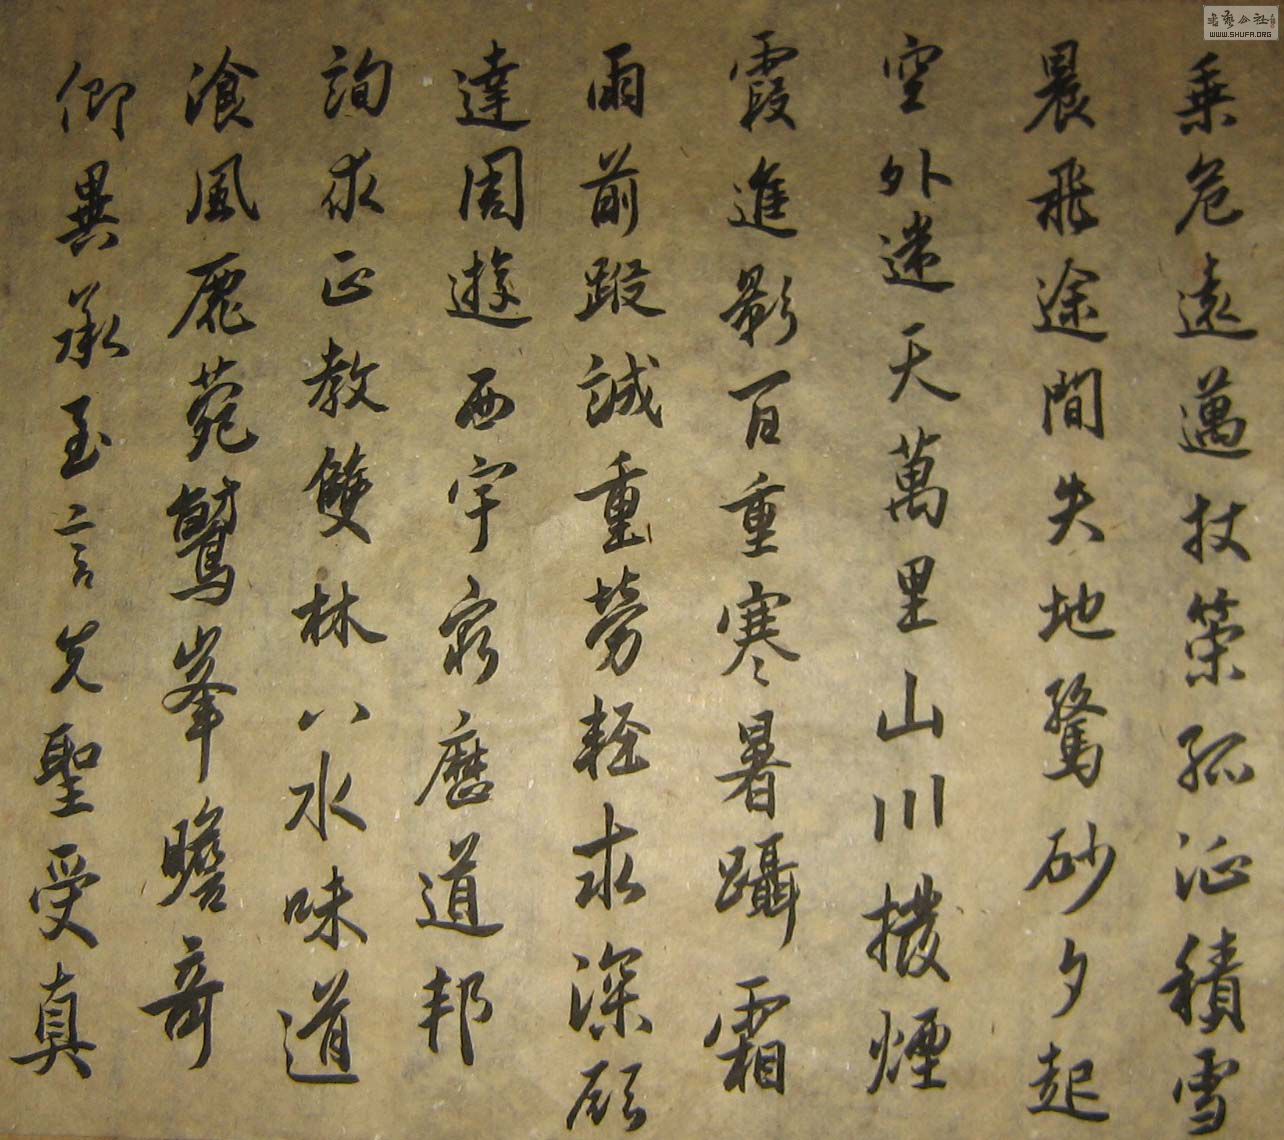 乗危遠邁杖策孤征積雪
晨飛途間失地驚砂夕起
空外迷天萬里山川撥煙
霞進影百重寒暑躡霜
雨前蹤誠重勞輕求深願
達周遊西宇窮歷道邦
詢求正教雙林八水味道
飡風鹿菀鷲峯瞻奇
仰異承至言先聖受真
书艺公社
WWW.SHUFA.ORG